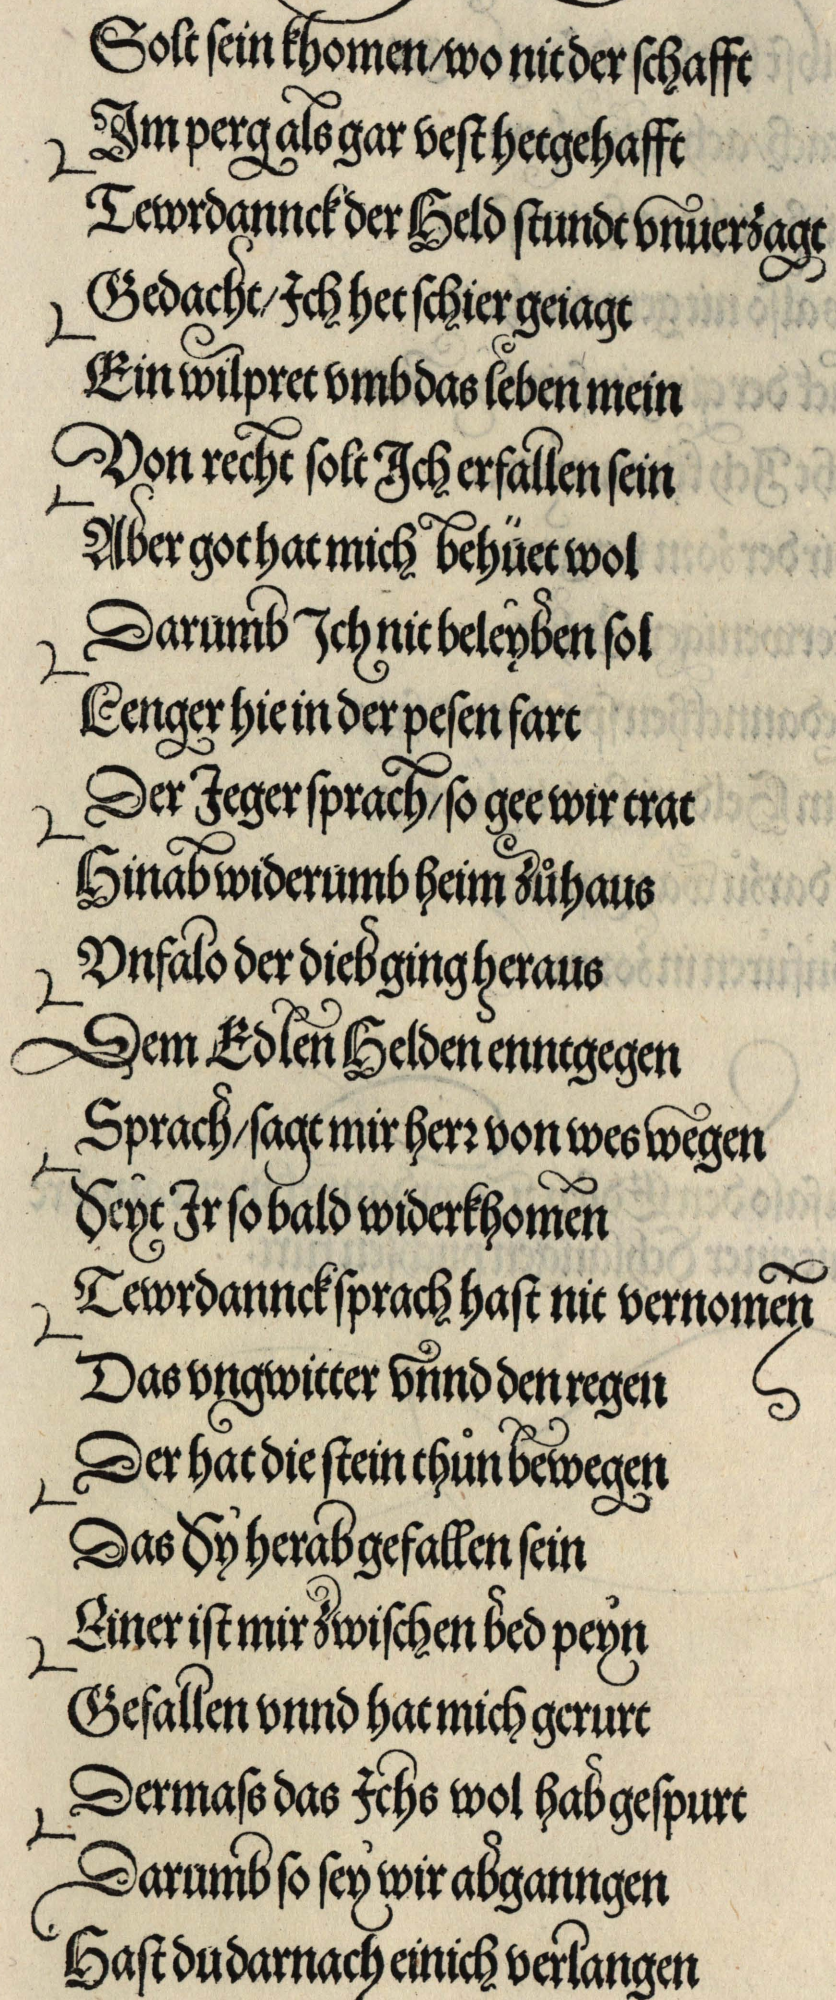 Solt sein khomen/wo nit der schafft
Im perg als gar vest het gehafft
Tewrdannck der Held stundt vnuerzagt
Gedacht/Ich het schier geiagt
Ein wilpret vmb das leben mein
Von recht solt Ich erfallen sein
Aber got hat mich behüet wol
Darumb Ich nit beleyben sol
Lenger hie in der pesen fart
Der Jeger sprach/so gee wir trat
Hinab widerumb heim zůhaus
Vnfalo der dieb ging heraus
Dem Edlen Helden enntgegen
Sprach/sagt mir herr von wes wegen
Seyt Ir so bald widerkhomen
Tewrdannck sprach hast nit vernomen
Das vngwitter vnnd den regen
Der hat die stein thůn bewegen
Das Sy herab gefallen sein
Einer ist mir zwischen bed peyn
Gefallen vnnd hat mich gerurt
Dermass das Ichs wol hab gespurt
Darumb so sey wir abganngen
Hast du darnach einich verlangen